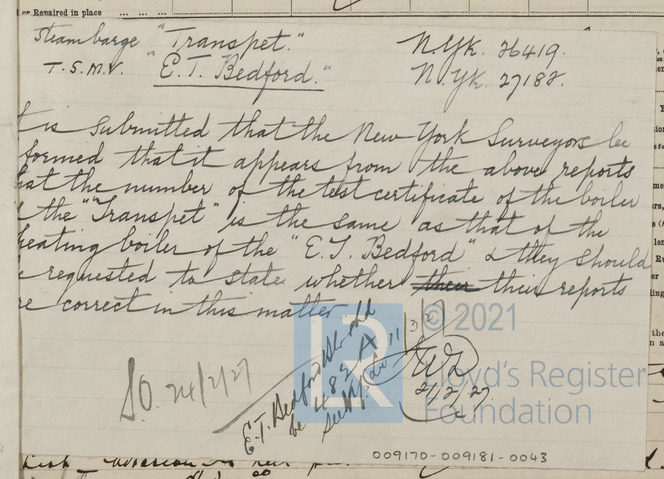 or Repaired in place
Steambarge "Transpet." N.Yk. 26419.
T.S.M.V. "E.T. Bedford." N.Yk. 27182.
t is submitted that the New York Surveyors be
formed that it appears from the above reports
hat the number of the test certificate of the boiler
the "Transpet" is the same as that of the
heating boiler of the "E.T. Bedford" & they should
e requested to state whether their their reports
re correct in this matter
E.T. Bedford should
be 482 A
11/3/27
S.O. 24/2/27
21/2/27
© 2021
Lloyd's Register
Foundation
LR
009170-009181-0043